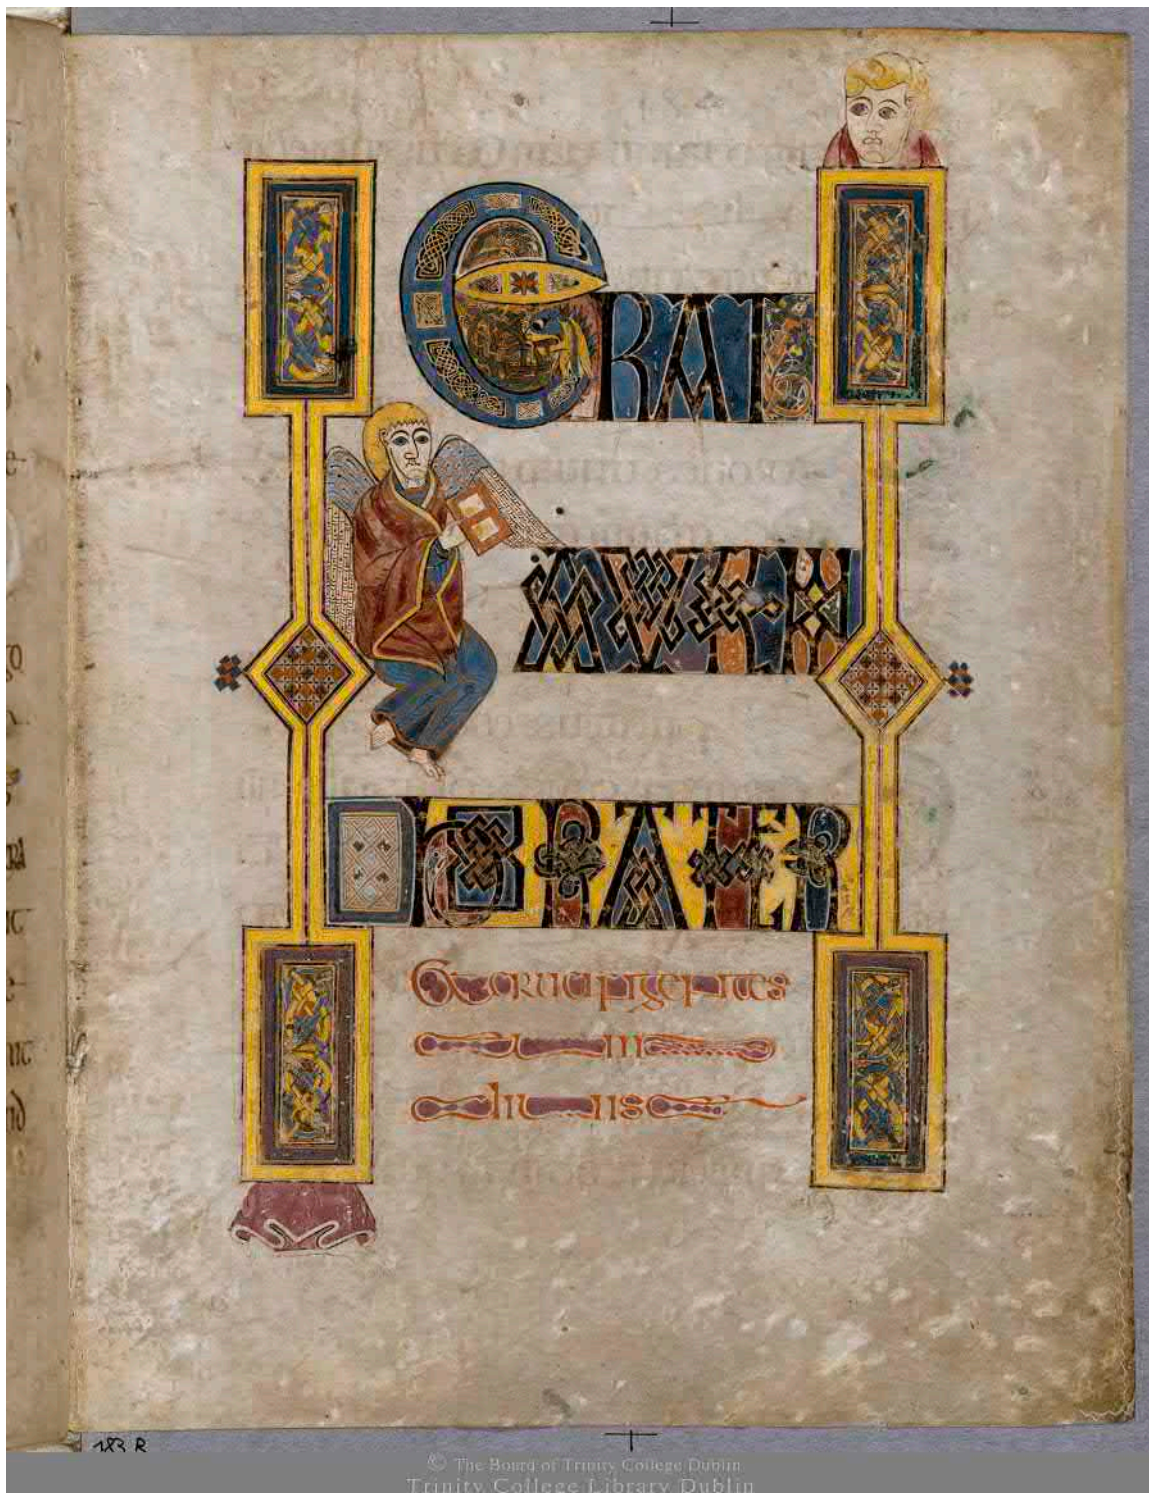 ERAT
AUTEM
HORATER
Et crucifigentes
eum
diuise
183 R
© The Board of Trinity College Dublin
Trinity College Library Dublin